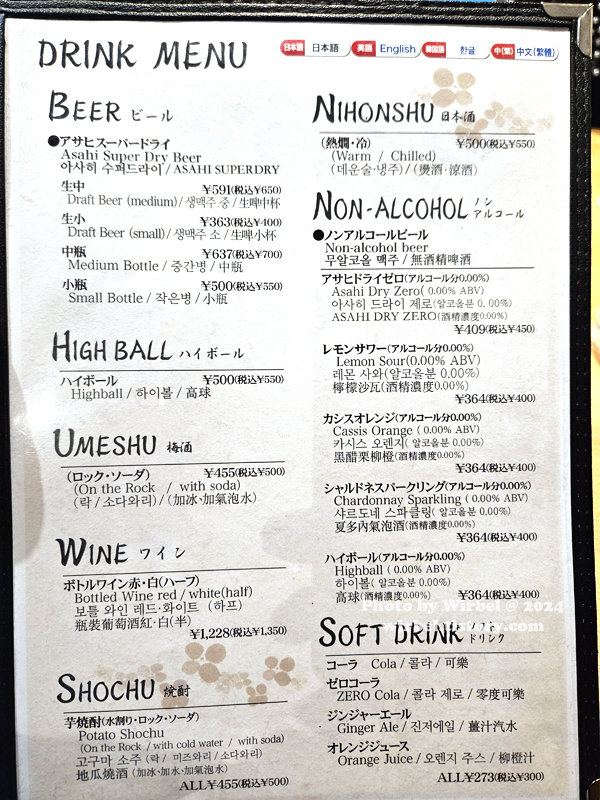 DRINK MENU
日本語 日本語 英語 English 韓国語 한글 中(繁) 中文(繁體)
BEER ビール
●アサヒスーパードライ
Asahi Super Dry Beer
아사히 수퍼드라이 / ASAHI SUPERDRY
生中 ¥591(税込¥650)
Draft Beer (medium) / 생맥주 중 / 生啤中杯
生小 ¥363(税込¥400)
Draft Beer (small) / 생맥주 소 / 生啤小杯
中瓶 ¥637(税込¥700)
Medium Bottle / 중간병 / 中瓶
小瓶 ¥500(税込¥550)
Small Bottle / 작은병 / 小瓶
HIGH BALL ハイボール
ハイボール ¥500(税込¥550)
Highball / 하이볼 / 高球
UMESHU 梅酒
(ロック・ソーダ) ¥455(税込¥500)
(On the Rock / with soda)
(락 / 소다와리) / (加冰・加氣泡水)
WINE ワイン
ボトルワイン赤・白(ハーフ)
Bottled Wine red / white(half)
보틀 와인 레드・화이트 (하프)
瓶裝葡萄酒紅・白(半)
¥1,228(税込¥1,350)
SHOCHU 焼酎
芋焼酎(水割り・ロック・ソーダ)
Potato Shochu
(On the Rock / with cold water / with soda)
고구마 소주 (락 / 미즈와리 / 소다와리)
地瓜燒酒 (加冰・加水・加氣泡水)
ALL¥455(税込¥500)
NIHONSHU 日本酒
(熱燗・冷) ¥500(税込¥550)
(Warm / Chilled)
(데운술・냉주) / (燙酒・涼酒)
NON-ALCOHOL ノンアルコール
●ノンアルコールビール
Non-alcohol beer
무알코올 맥주 / 無酒精啤酒
アサヒドライゼロ(アルコール分0.00%)
Asahi Dry Zero( 0.00% ABV)
아사히 드라이 제로(알코올분 0.00%)
ASAHI DRY ZERO(酒精濃度0.00%)
¥409(税込¥450)
レモンサワー(アルコール分0.00%)
Lemon Sour(0.00% ABV)
레몬 사와(알코올분 0.00%)
檸檬沙瓦(酒精濃度0.00%)
¥364(税込¥400)
カシスオレンジ(アルコール分0.00%)
Cassis Orange ( 0.00% ABV)
카시스 오렌지( 알코올분 0.00%)
黑醋栗柳橙(酒精濃度0.00%)
¥364(税込¥400)
シャルドネスパークリング(アルコール分0.00%)
Chardonnay Sparkling ( 0.00% ABV)
샤르도네 스파클링( 알코올분 0.00%)
夏多內氣泡酒(酒精濃度0.00%)
¥364(税込¥400)
ハイボール(アルコール分0.00%)
Highball ( 0.00% ABV)
하이볼( 알코올분 0.00%)
高球(酒精濃度0.00%) ¥364(税込¥400)
Photo by Wirbel @ 2024
SOFT DRINK ソフトドリンク
コーラ Cola / 콜라 / 可樂
ゼロコーラ
ZERO Cola / 콜라 제로 / 零度可樂
ジンジャーエール
Ginger Ale / 진저에일 / 薑汁汽水
オレンジジュース
Orange Juice / 오렌지 주스 / 柳橙汁
ALL¥273(税込¥300)